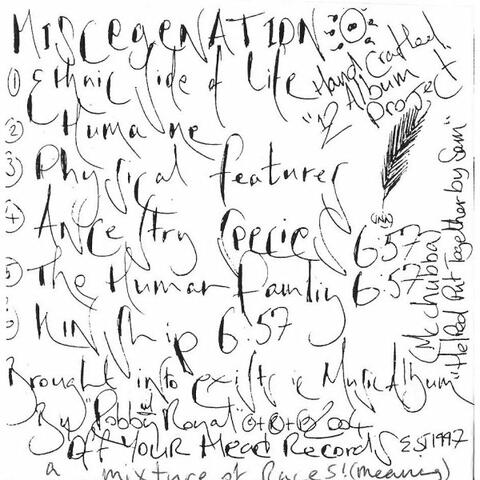 MISCEGENATION
Hand Crafted
"12 Album
Project
① Ethnic side of Life
② Humane
③ Physical features
④ Ancestry Species 6:57
⑤ The Human Family 6:57
⑥ Kin Ship 6:57
Mcchubba
"Helped Put Together by Sam"
Brought into existence Music Album
By "Bobby Royal" 2004
Of YOUR Head Records E.S 1997
a mixture of Races! (meaning)